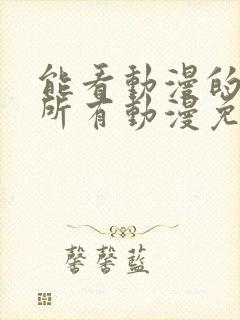 能看動漫的
所有動漫免
馨馨藍